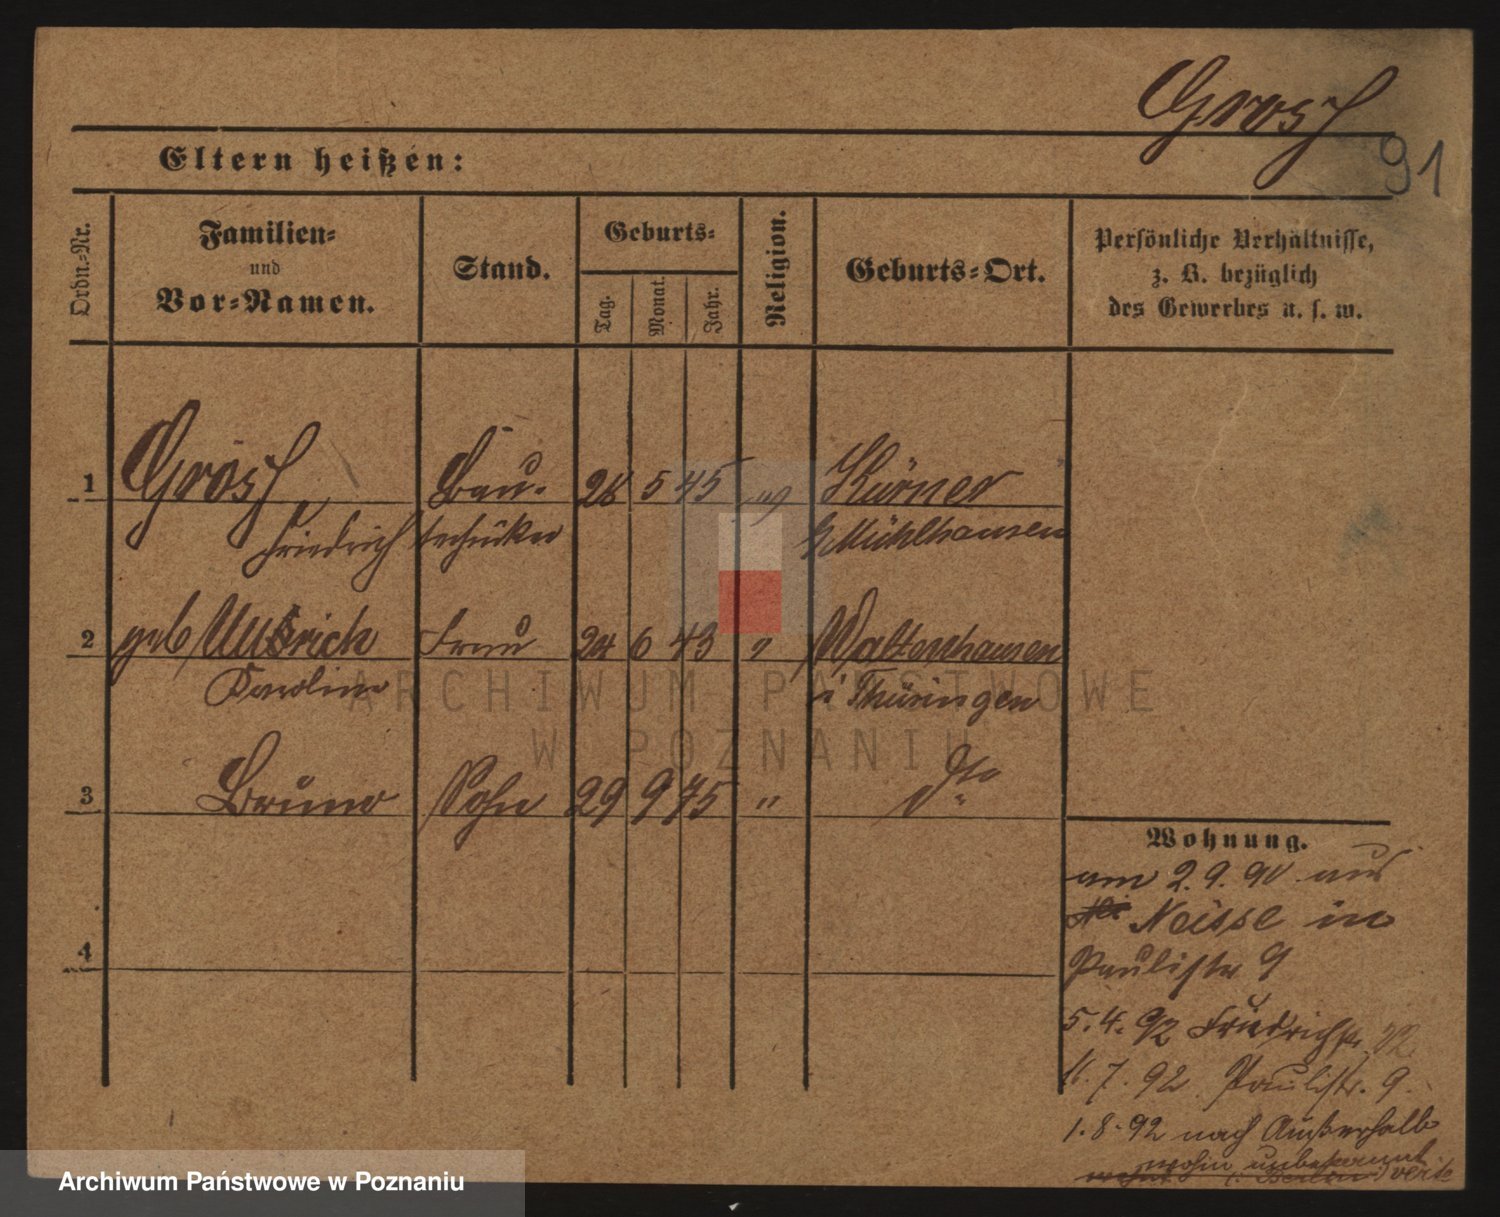 Grosch
91
Eltern heißen:
Ordn.-Nr.
Familien-
und
Vor-Namen.
Stand.
Geburts-
Tag.
Monat.
Jahr.
Religion.
Geburts-Ort.
Persönliche Verhältnisse,
z. B. bezüglich
des Gewerbes u. s. w.
1 Grosch Bau- 28 5 45 ev Körner
Friedrich techniker b/Mühlhausen
2 geb Ulbrich Frau 24 6 43 " Waltershausen
Karoline i Thüringen
3 Bruno Sohn 29 9 75 " do
4
Wohnung.
am 2.9.90 aus
Neisse in
Paulistr 9
5.4.92 Friedrichstr 22
11.7.92 Paulistr. 9.
1.8.92 nach Außerhalb
wohin unbekannt
Archiwum Państwowe w Poznaniu
ARCHIWUM PAŃSTWOWE
W POZNANIU